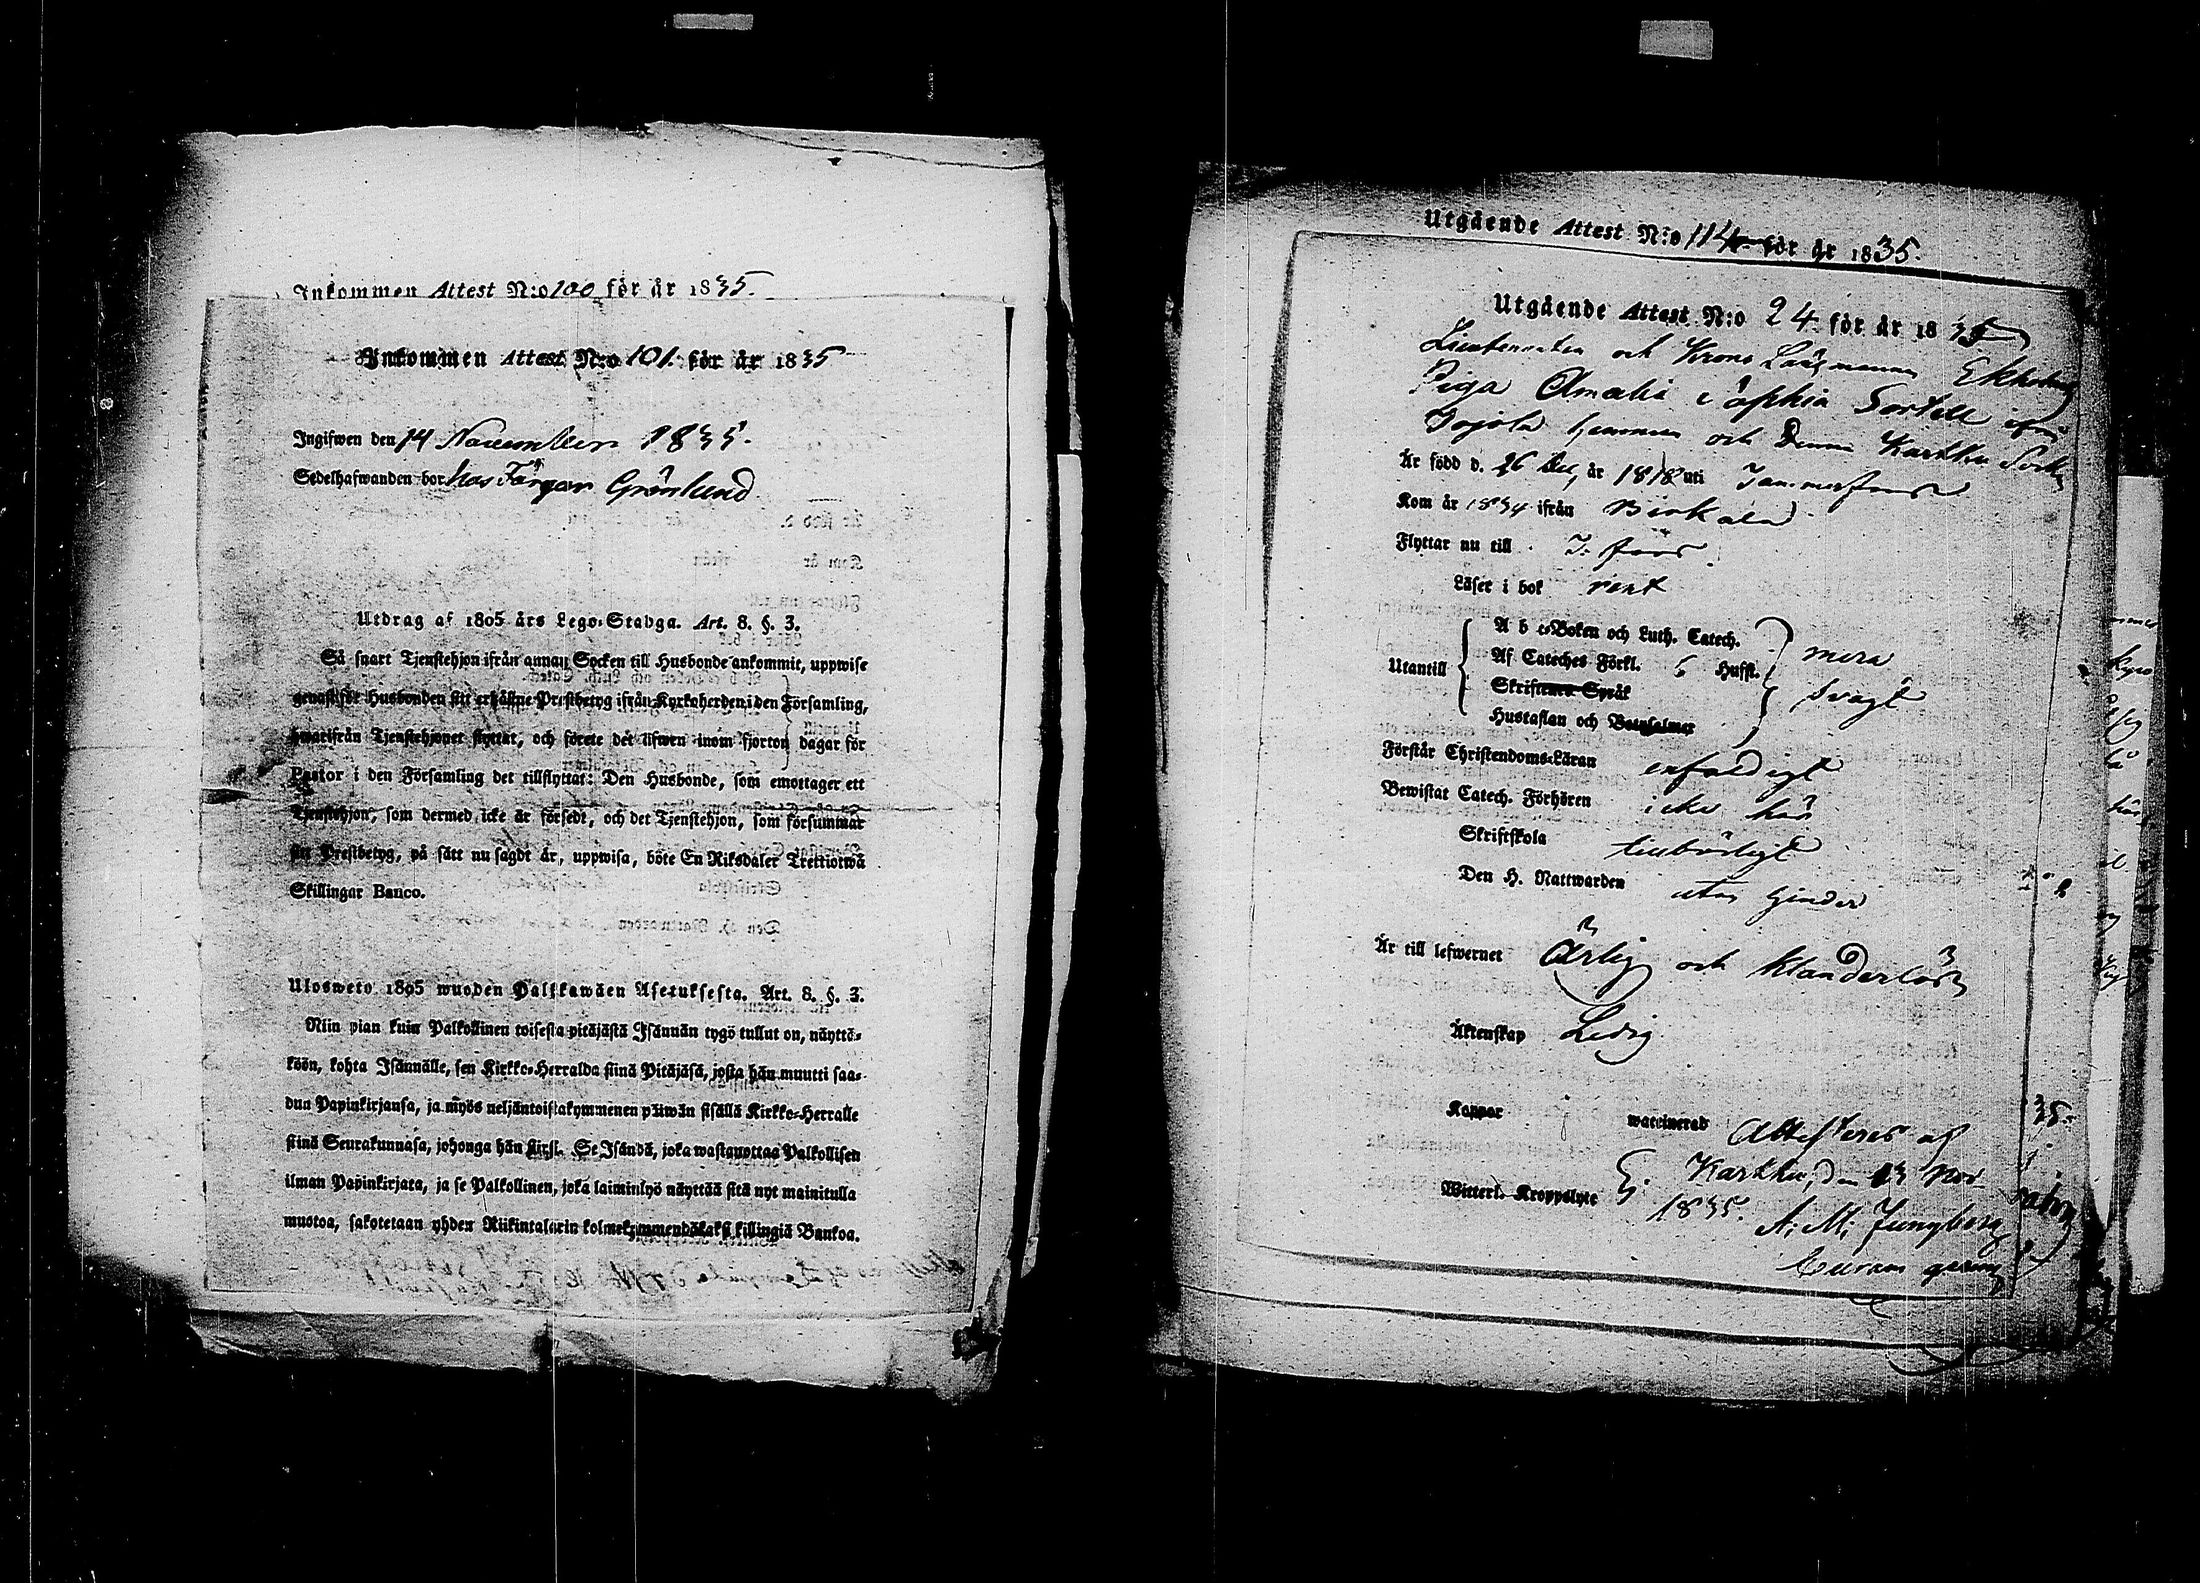 Inkommen Attest N:o 100 för år 1835.
Inkommen Attest N:o 101. för år 1835
Ingifwen den 14 November 1835.
Sedelhafwanden bor hos Färgar Grönlund
Utdrag af 1805 års Lego-Stadga. Art. 8. §. 3.
Så snart Tjenstehjon ifrån annan Socken till Husbonde ankommit, uppwise
genast för Husbonden sitt erhållne Prestbetyg ifrån Kyrkoherden i den Församling,
hwarifrån Tjenstehjonet flyttat, och förete det äfwen inom fjorton dagar för
Pastor i den Församling det tillflyttat: Den Husbonde, som emottager ett
Tjenstehjon, som dermed icke är försedt, och det Tjenstehjon, som försummar
sitt Prestbetyg, på sätt nu sagdt är, uppwisa, böte En Riksdaler Trettiotwå
Skillingar Banco.
Ulosweto 1805 wuoden Palkkawäen Asetuksesta. Art. 8. §. 3.
Niin pian kuin Palkollinen toisesta pitäjästä Isännän tygö tullut on, näyttä-
köön, kohta Isännälle, sen Kirkko-Herralda siinä Pitäjäsä, josta hän muutti saa-
dun Papinkirjansa, ja myös neljäntoistakymmenen päiwän sisällä Kirkko-Herralle
siinä Seurakunnasa, johonga hän siirsi. Se Isändä, joka wastanottaa Palkollisen
ilman Papinkirjata, ja se Palkollinen, joka laiminlyö näyttää sitä nyt mainitulla
muotoa, sakotetaan yhden Riikintalarin kolmekymmendäkaksi killingiä Bankoa.
Utgående Attest N:o 114 för år 1835.
Utgående Attest N:o 24. för år 1835
Lieutenanten och Krono Länsmannen Ekholms
Piga Amalia Sophia Sortell ifrån
Jojola hemman och Denna Karkku Sockn
Är född d. 26 Dec, år 1818 uti Tammerfors
Kom år 1834 ifrån Birkala
Flyttar nu till T. fors
Läser i bok rent
Utantill
A b c-Boken och Luth. Catech.
Af Cateches Förkl. 5 Hufst.
Skriftenes Språk
Hustaflan och Botpsalmer
mera
svagt
Förstår Christendoms-Läran enfaldigt
Bewistat Catech. Förhören icke här
Skriftskola tilbörligt
Den H. Nattwarden utan hinder
Är till lefwernet Ärlig och klanderlös
Äktenskap Ledig
Koppor waccinerad Attesteras af
Witterl. Kroppslyte Ej. Karkku, den 13 Nov
1835. A: M: Ljungberg